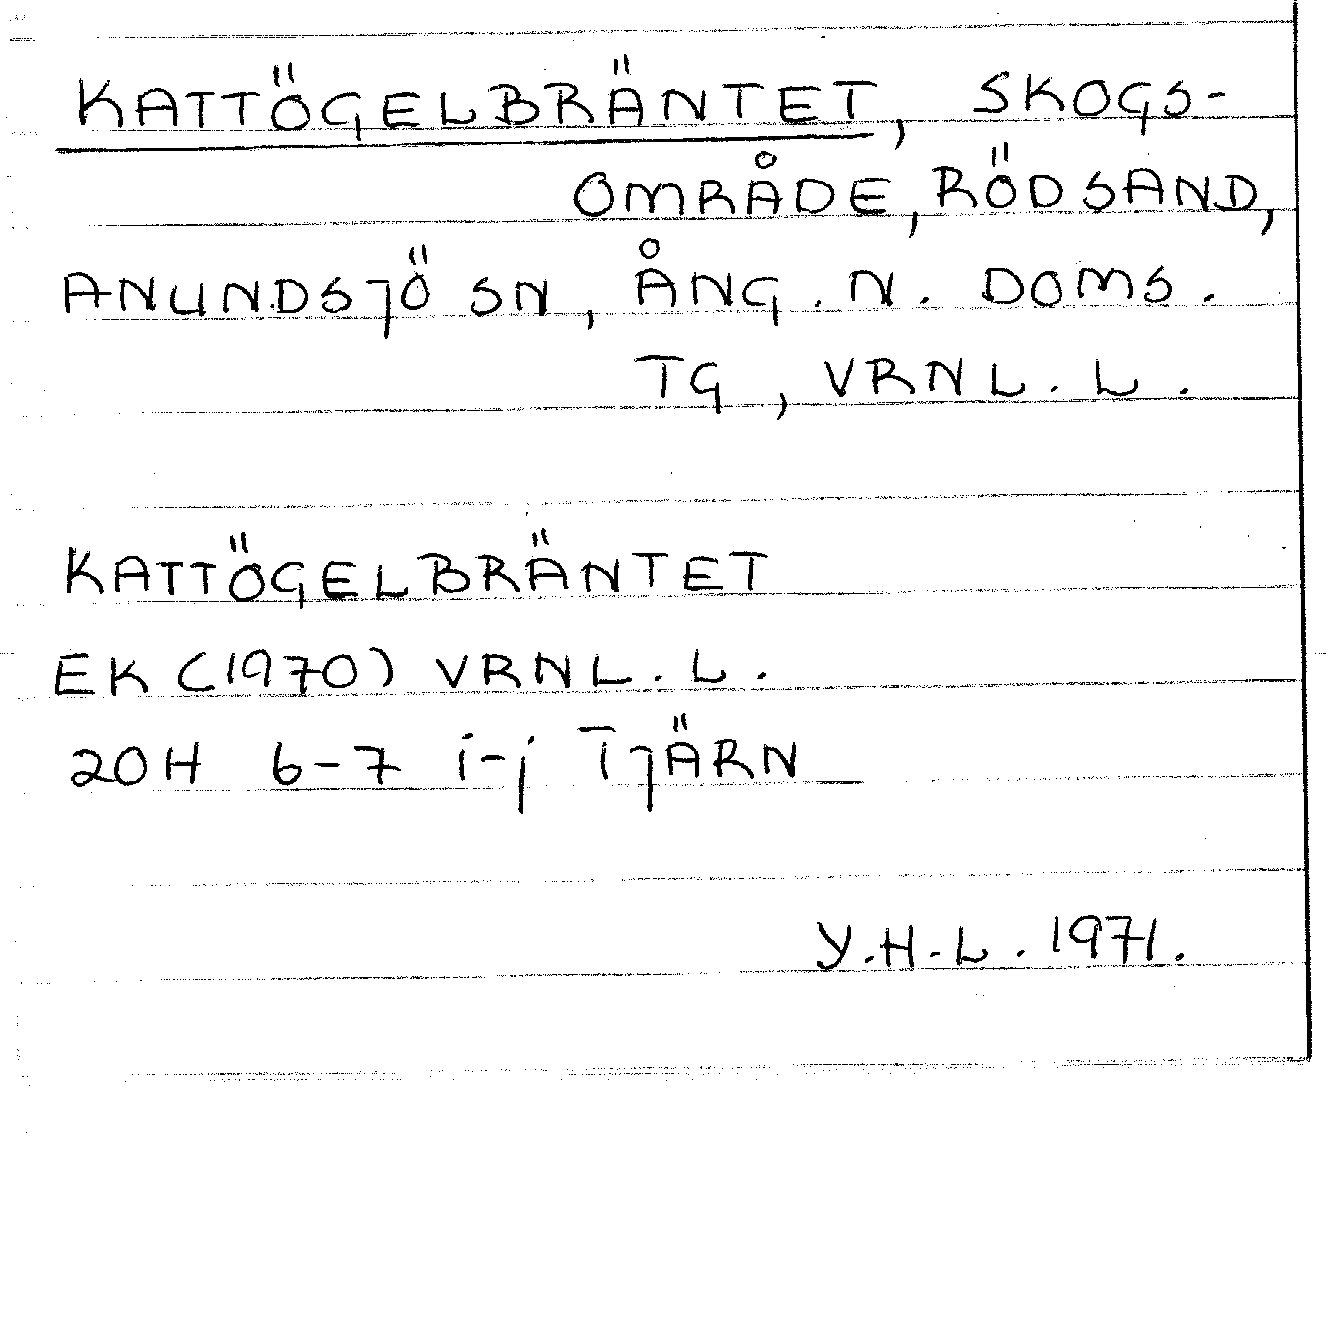 KATTÖGELBRÄNTET, SKOGS-
OMRÅDE, RÖDSAND,
ANUNDSJÖ SN, ÅNG. N. DOMS.
TG, VRNL. L.
KATTÖGELBRÄNTET
EK (1970) VRNL. L.
20H 6-7 i-j TJÄRN
Y.H.L. 1971.